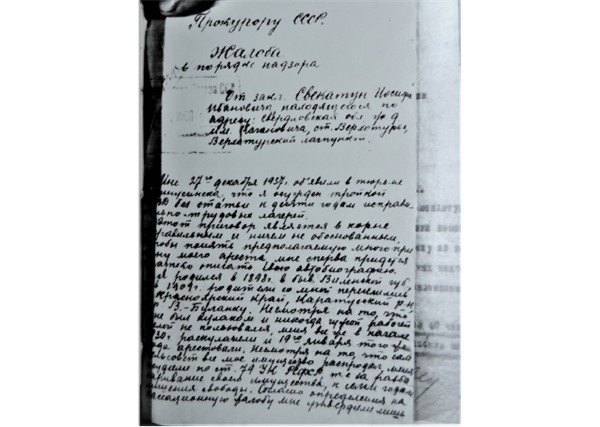 Прокурору СССР.
Жалоба
в порядке надзора
От закл. Свенатун Иосифа
Ивановича, находящегося по
адресу: Свердловская обл. ж.д.
им. Кагановича, ст. Верхотурье,
Верхотурский лагпункт.
Мне 27го декабря 1937г. об'явили в тюрьме
инусинска, что я осужден тройкой
без статьи к десяти годам исправи
льно-трудовых лагерей.
Этот приговор является в корне
правильным и ничем не обоснованным.
тобы понять предполагаемую мною при
ну моего ареста, мне сперва придется
описать свою автобиографию.
я родился в 1898г. в быв. Виленской губ.
в 1909г. родители со мной переселились
Красноярский край, Каратузский р-н
с. В.-Буланку. Несмотря на то, что
не был кулаком и никогда чужой рабочей
лой не пользовался, меня все же в начале
30г. раскулачили и 19го января того же
ода арестовали. Несмотря на то, что сам
ельсовет все мое имущество распродал, меня
судили по ст. 79 УК РСФСР за разба
заривание своего имущества, к годам
лишения свободы. Согласно определения на
ассационную жалобу мне утвердили лишь